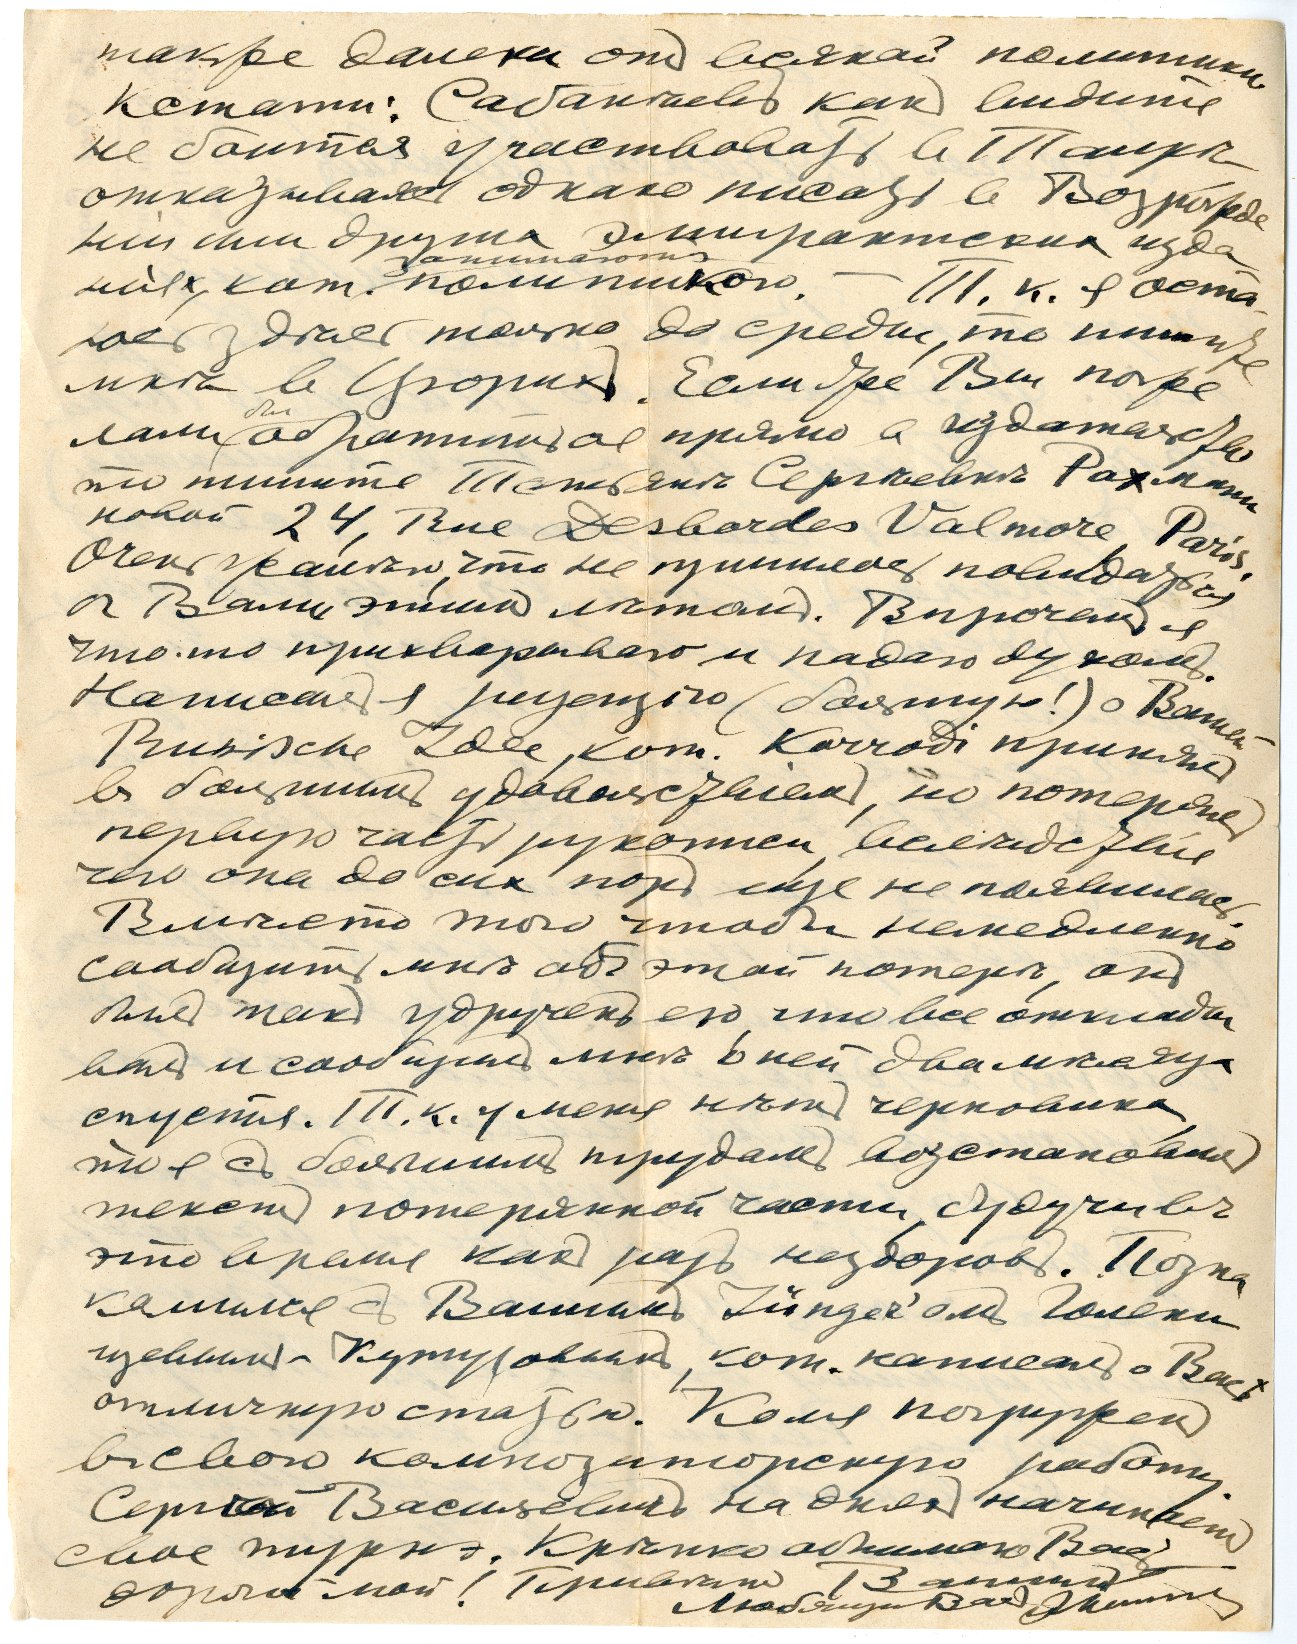 также далеки отъ всякой политики
Кстати: Сабанѣевъ какъ видите
не боится участвовать в Таирѣ
отказываясь однако писать в Возрожде
нiи или другихъ эмигрантских изда
нiях, кот. занимаются политикою. — Т. к. я оста-
юсь здѣсь только до среды, то пишите
мнѣ в Цюрихъ. Если же Вы поже
лали бы обратиться прямо в издательство
то пишите Татьянѣ Сергѣевнѣ Рахмани
новой 24, Rue Desbordes Valmore, Paris.
Очень жалѣю, что не пришлось повидаться
с Вами этимъ лѣтомъ. Впрочемъ я
что-то прихварываю и падаю духомъ.
Написалъ я рецензiю (большую!) о Вашей
Russische Idee, кот. Korrodi принялъ
съ большимъ удовольствiемъ, но потерялъ
первую часть рукописи, вслѣдствiе
чего она до сих поръ еще не появилась.
Вмѣсто того чтобы немедленно
сообщить мнѣ объ этой потерѣ, онъ
былъ такъ удрученъ ею, что все откладывалъ
и сообщилъ мнѣ о ней два мѣсяца
спустя. Т. к. у меня нѣтъ черновика,
то я съ большимъ трудомъ возстановилъ
текстъ потерянной части, будучи въ
это время какъ разъ нездоровъ. Позна
комился съ Вашимъ Jünger'омъ Голени
щевымъ-Кутузовымъ, кот. написалъ о Васъ
отличную статью. Коля погруженъ
въ свою композиторскую работу,
Сергѣй Васильевичъ на дняхъ начинаетъ
свое турнэ. Крѣпко обнимаю Васъ
дорогой мой! Привѣтъ Вашимъ
Любящiй Васъ Эмилiй